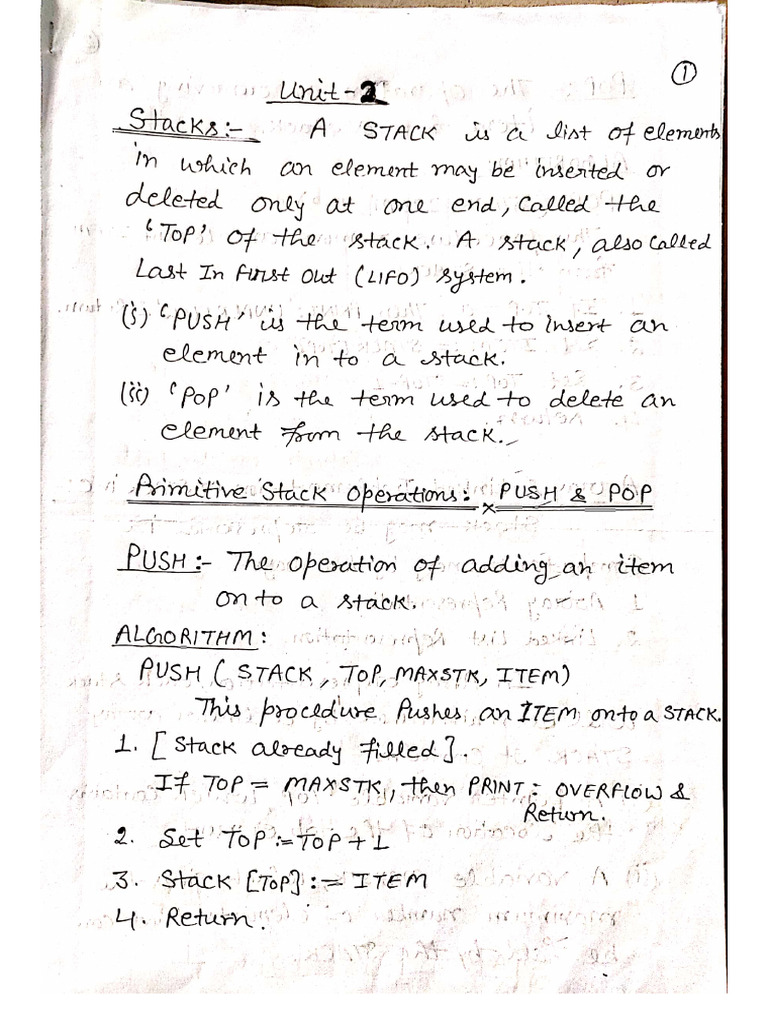 ①
Unit-2
Stacks:- A STACK is a list of elements
in which an element may be inserted or
deleted only at one end, called the
'TOP' of the stack. A stack, also called
Last In First Out (LIFO) system.
(i) 'PUSH' is the term used to insert an
element in to a stack.
(ii) 'POP' is the term used to delete an
element from the stack.
Primitive Stack Operations: PUSH & POP
PUSH:- The operation of adding an item
on to a stack.
ALGORITHM:
PUSH (STACK, TOP, MAXSTK, ITEM)
This procedure Pushes an ITEM onto a STACK.
1. [Stack already filled].
If TOP = MAXSTK, then PRINT: OVERFLOW &
Return.
2. Set TOP := TOP + 1
3. Stack [TOP] := ITEM
4. Return.